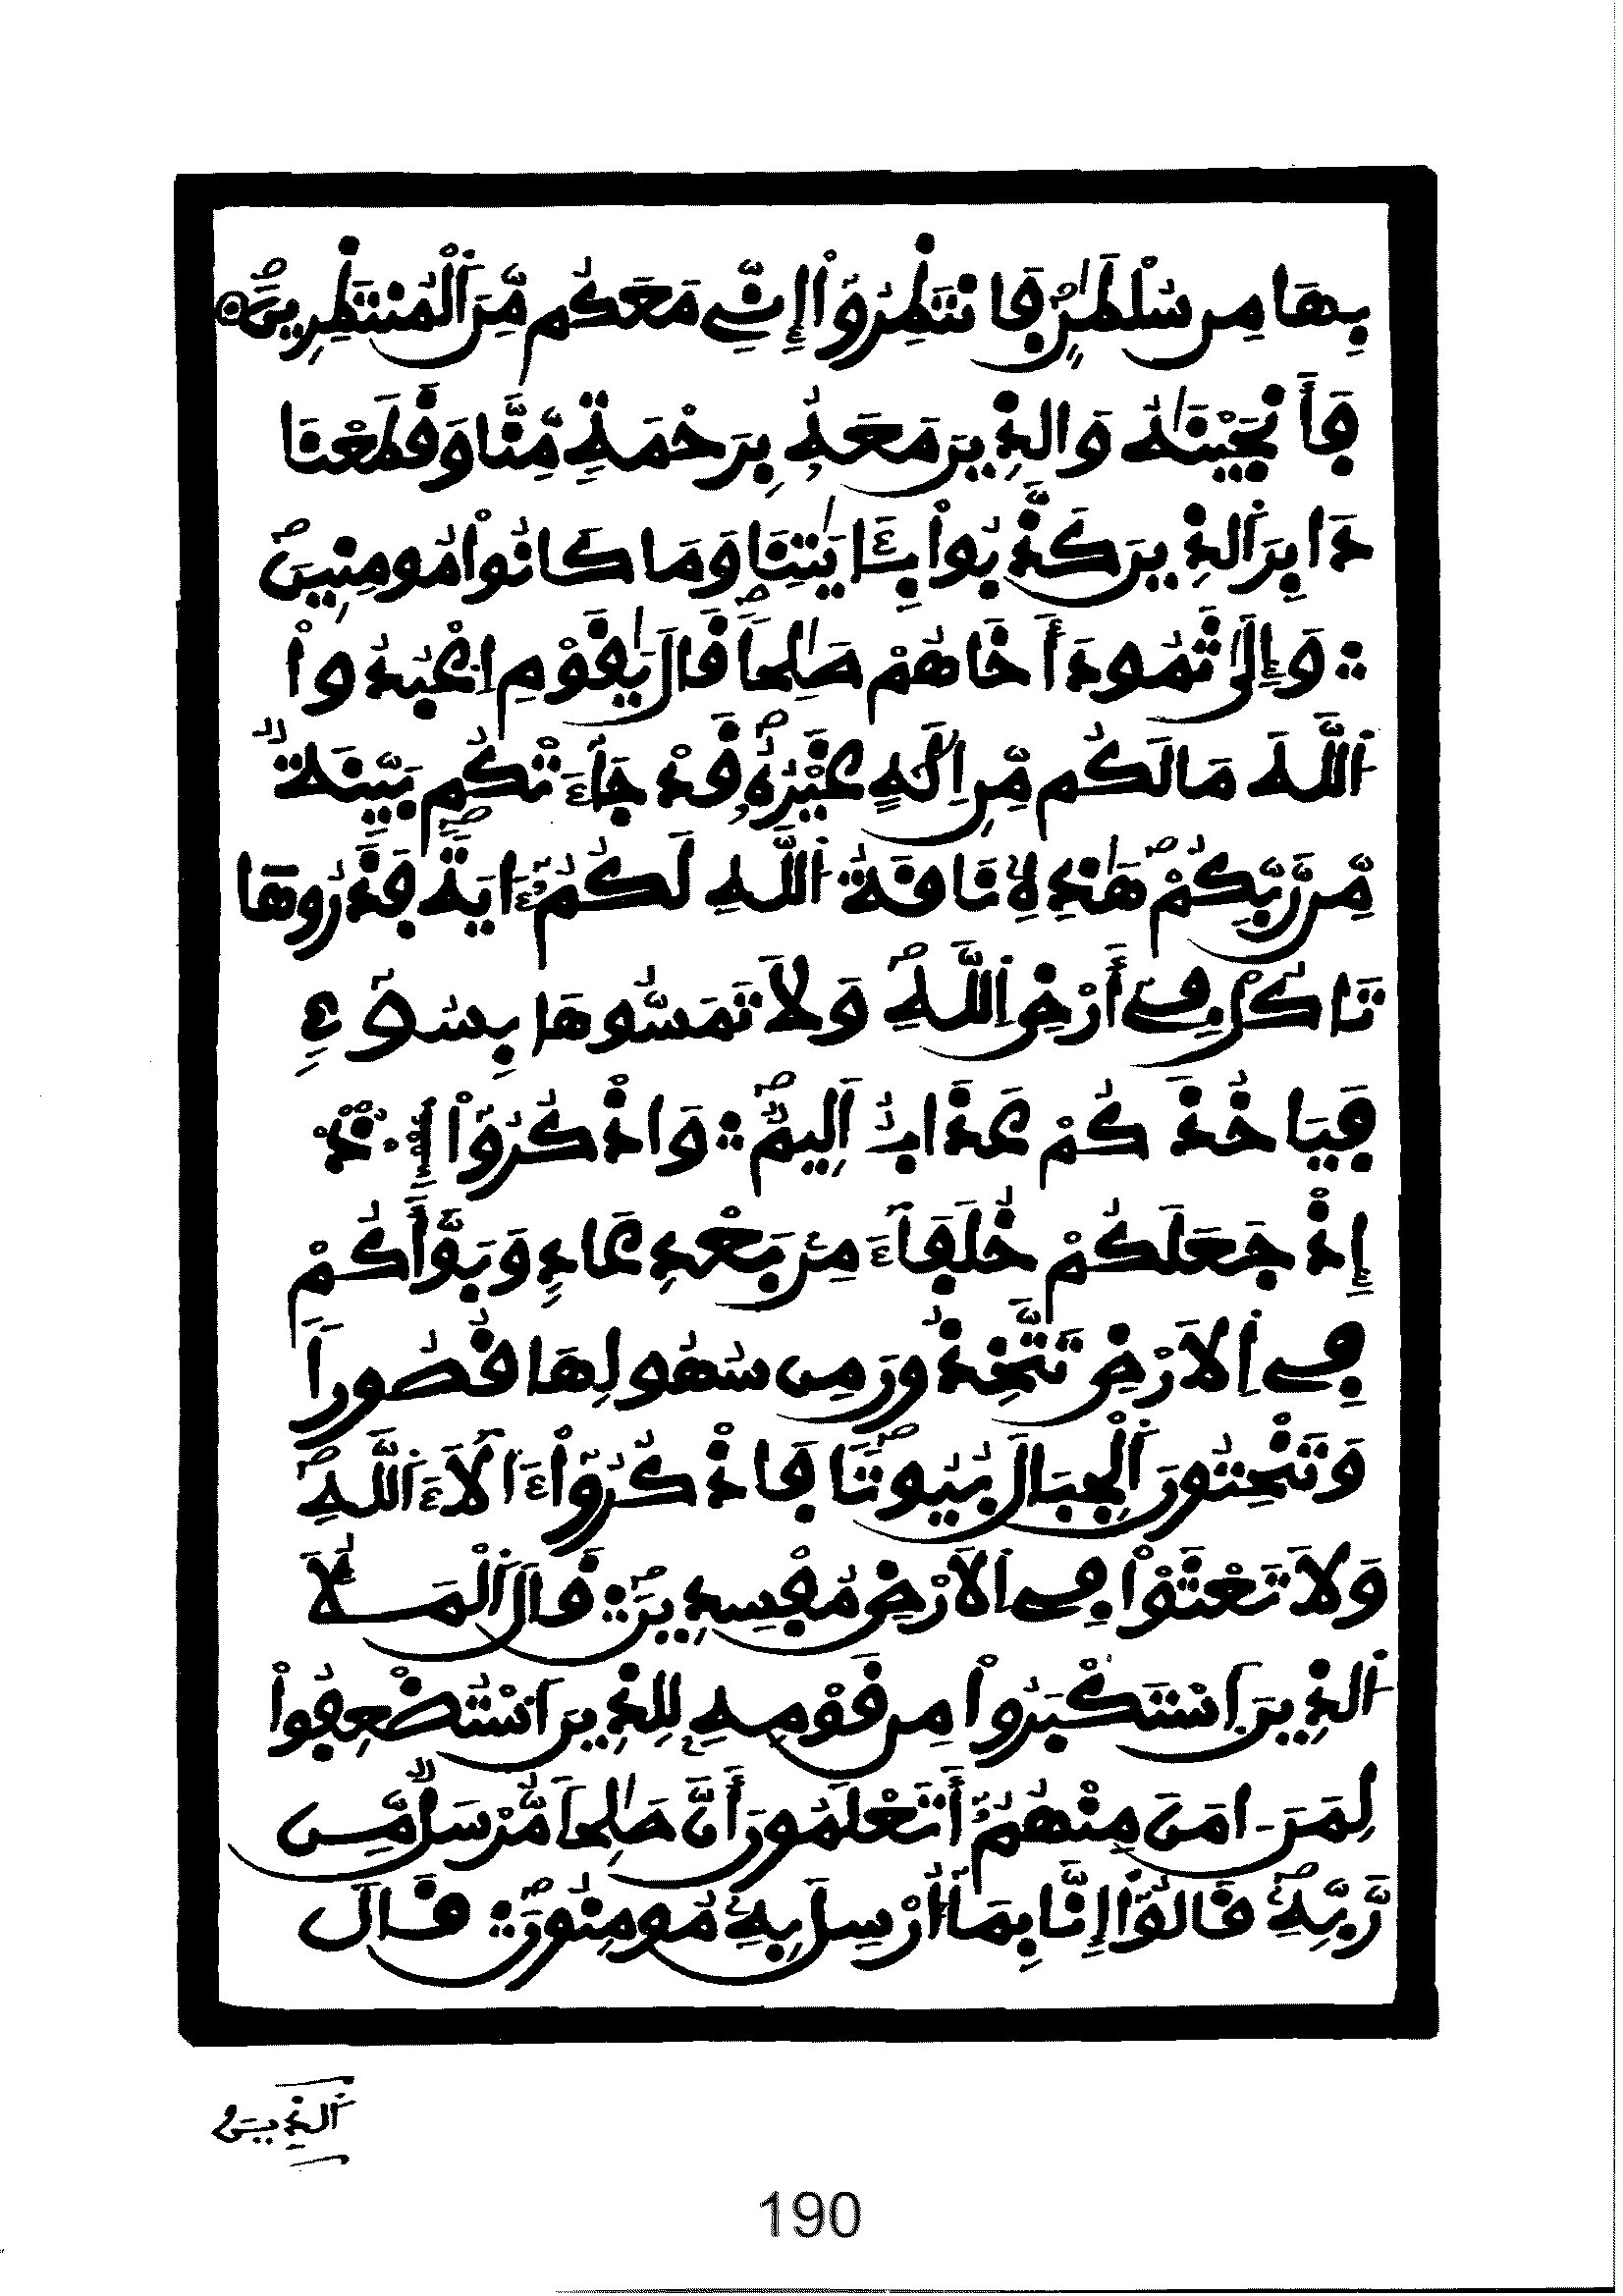 بِهَا مِن سُلْطَٰنٍ فَانتَظِرُوٓاْ إِنِّے مَعَكُم مِّنَ ٱلْمُنتَظِرِينَ
فَأَنجَيْنَٰهُ وَالذِينَ مَعَهُۥ بِرَحْمَةٍ مِّنَّا وَقَطَعْنَا
دَابِرَ ٱلذِينَ كَذَّبُواْ بِـَٔايَٰتِنَا وَمَا كَانُواْ مُومِنِينَ
وَإِلَىٰ ثَمُودَ أَخَاهُمْ صَٰلِحاً قَالَ يَٰقَوْمِ اِعْبُدُواْ
اُ۬للَّهَ مَا لَكُم مِّنِ اِلَٰهٍ غَيْرُهُۥ قَدْ جَآءَتْكُم بَيِّنَةٌ
مِّن رَّبِّكُمْ هَٰذِهِۦ نَاقَةُ اُ۬للَّهِ لَكُمُۥٓ ءَايَةً فَذَرُوهَا
تَاكُلْ فِےٓ أَرْضِ اِ۬للَّهِ وَلَا تَمَسُّوهَا بِسُوٓءٍ
فَيَاخُذَكُمْ عَذَابٌ اَلِيمٌ وَاذْكُرُوٓاْ
إِذْ جَعَلَكُمْ خُلَفَآءَ مِنۢ بَعْدِ عَادٍ وَبَوَّأَكُمْ
فِے اِ۬لَارْضِ تَتَّخِذُونَ مِن سُهُولِهَا قُصُوراً
وَتَنْحِتُونَ اَ۬لْجِبَالَ بُيُوتاً فَاذْكُرُوٓاْ ءَالَآءَ اَ۬للَّهِ
وَلَا تَعْثَوْاْ فِے اِ۬لَارْضِ مُفْسِدِينَ قَالَ اَ۬لْمَلَأُ
اُ۬لذِينَ اَ۪سْتَكْبَرُواْ مِن قَوْمِهِۦ لِلذِينَ اَ۟سْتُضْعِفُواْ
لِمَنَ اٰمَنَ مِنْهُمُۥٓ أَتَعْلَمُونَ أَنَّ صَٰلِحاً مُّرْسَلٌ مِّن
رَّبِّهِۦ قَالُوٓاْ إِنَّا بِمَآ أُرْسِلَ بِهِۦ مُومِنُونَ قَالَ
اَ۬لذِينَ
190